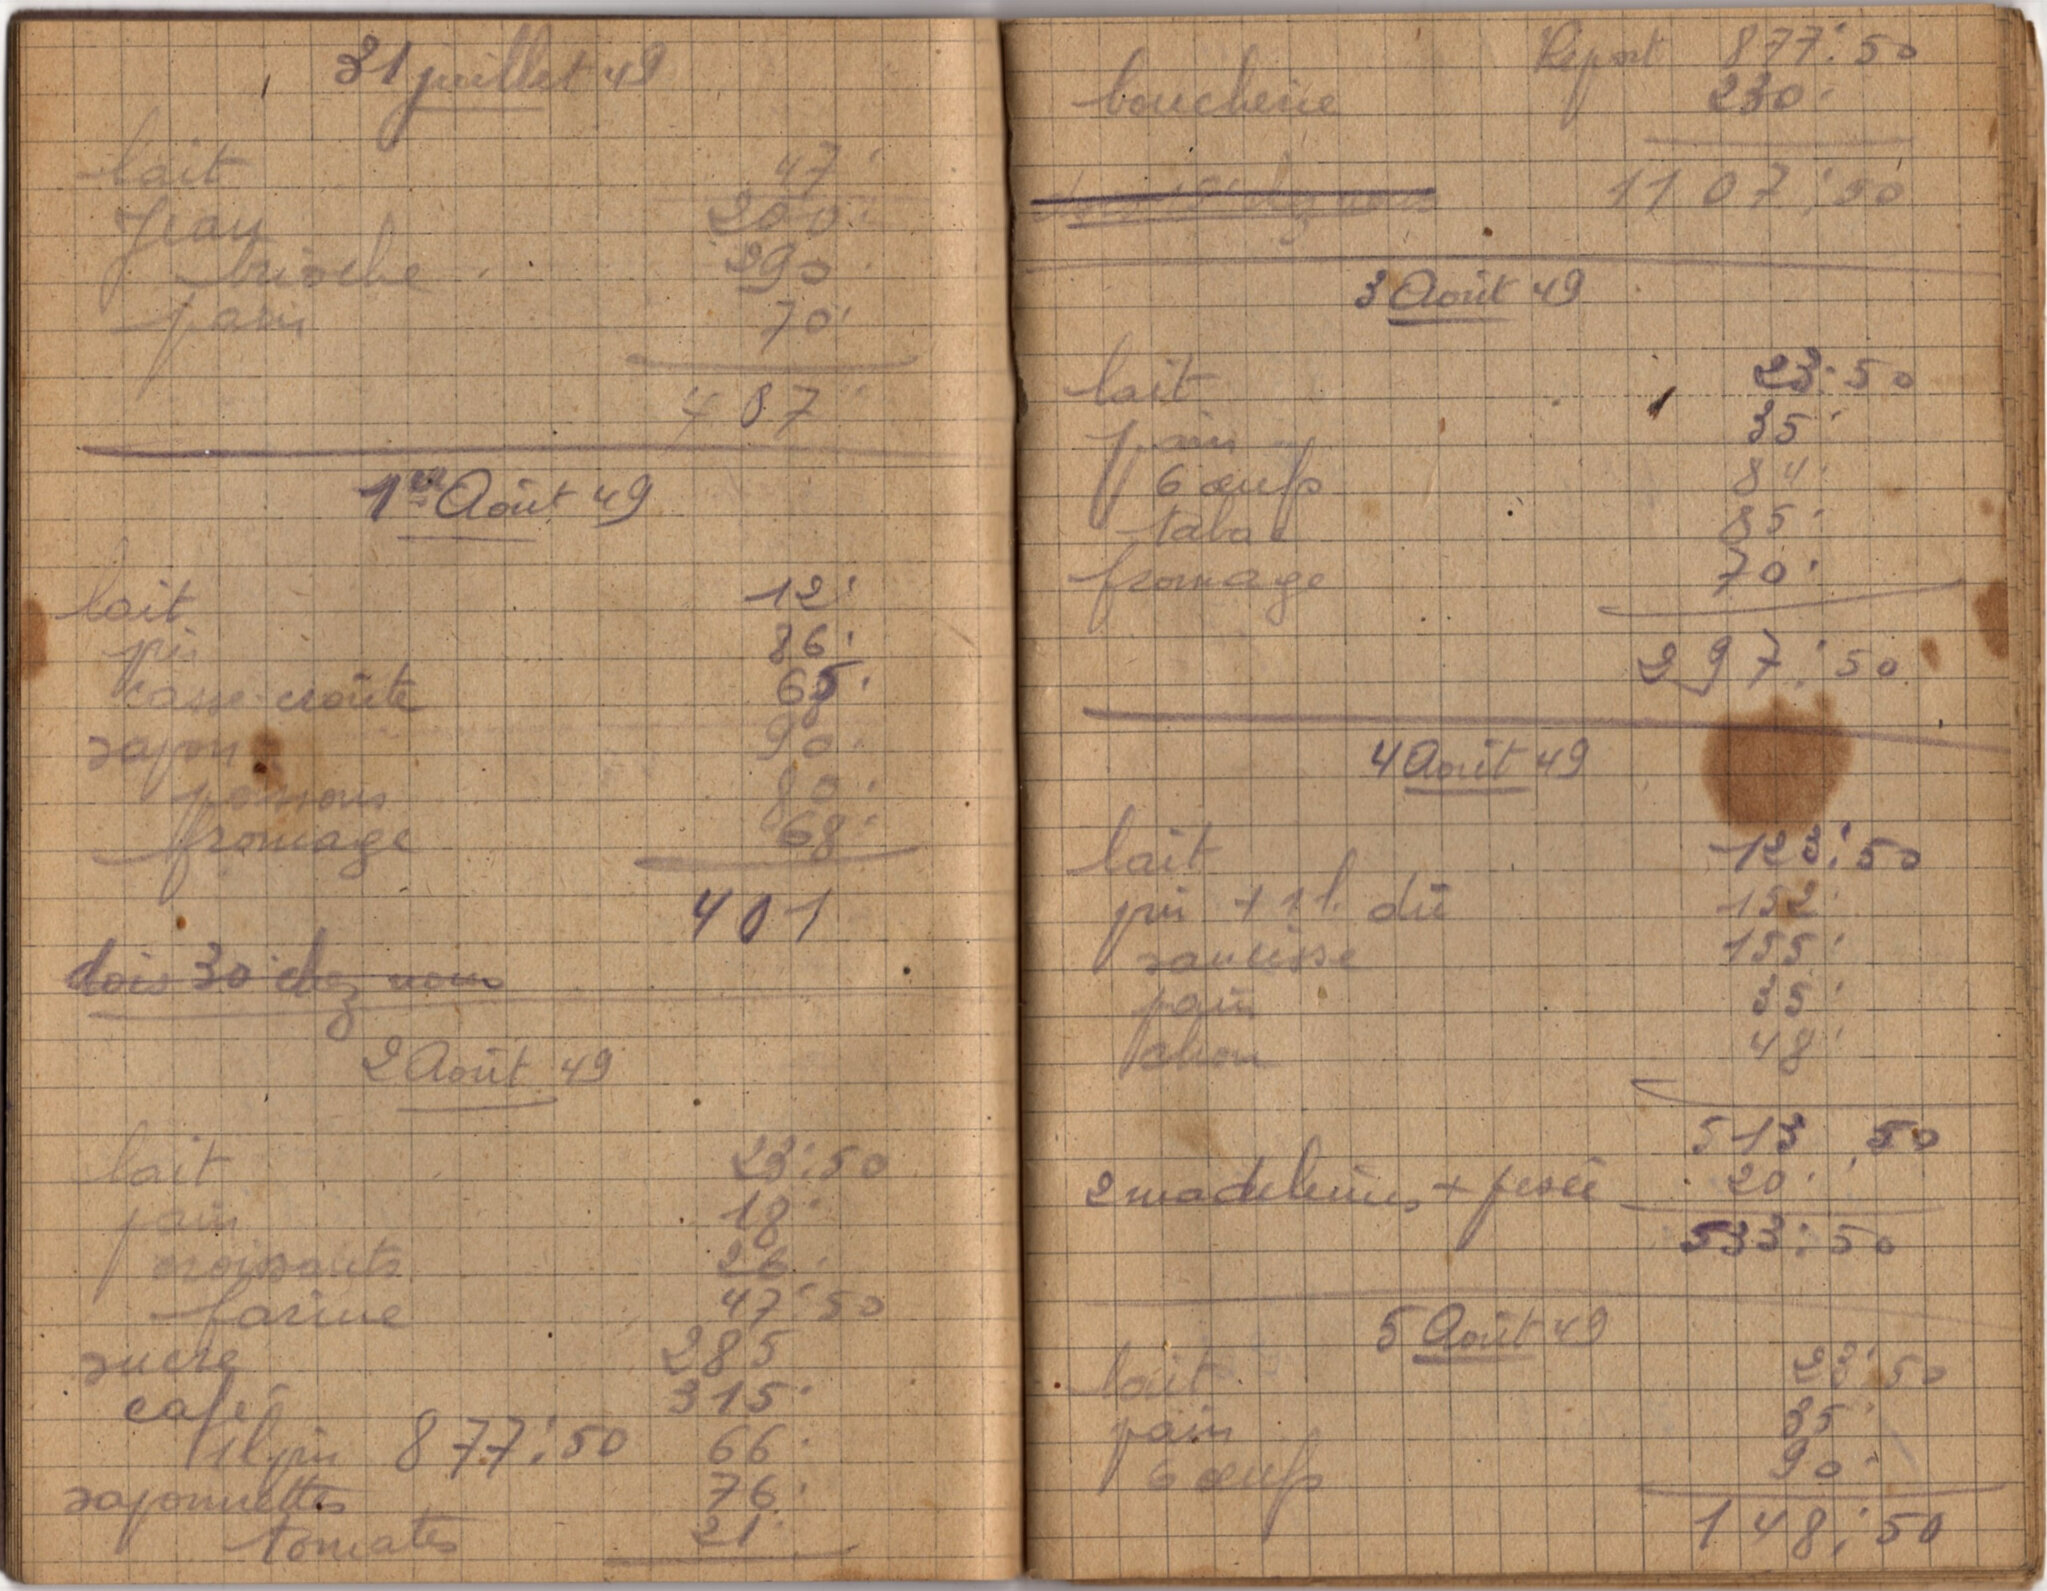 31 juillet 49
lait 47
Jean 200
brioche 290
pain 70
407
1er Août 49
lait 12
pin 86
casse-croûte 65
savon 90
poissons 80
fromage 68
401
dois 30 chez nous
2 Août 49
lait 23:50
pain 18
croissants 26
farine 47:50
sucre 285
café 315
1l pin 877:50 66
savonnettes 76
tomates 21
Report 877:50
boucherie 230
chez nous 1107:50
3 Août 49
lait 23:50
pain 35
6 œufs 84
tabac 85
fromage 70
297:50
4 Août 49
lait 123:50
pin + 1 l. dû 152
saucisse 155
pain 35
48
513 50
2 madeleines + 20
533:50
5 Août 49
lait 23:50
pain 35
6 œufs 90
148:50